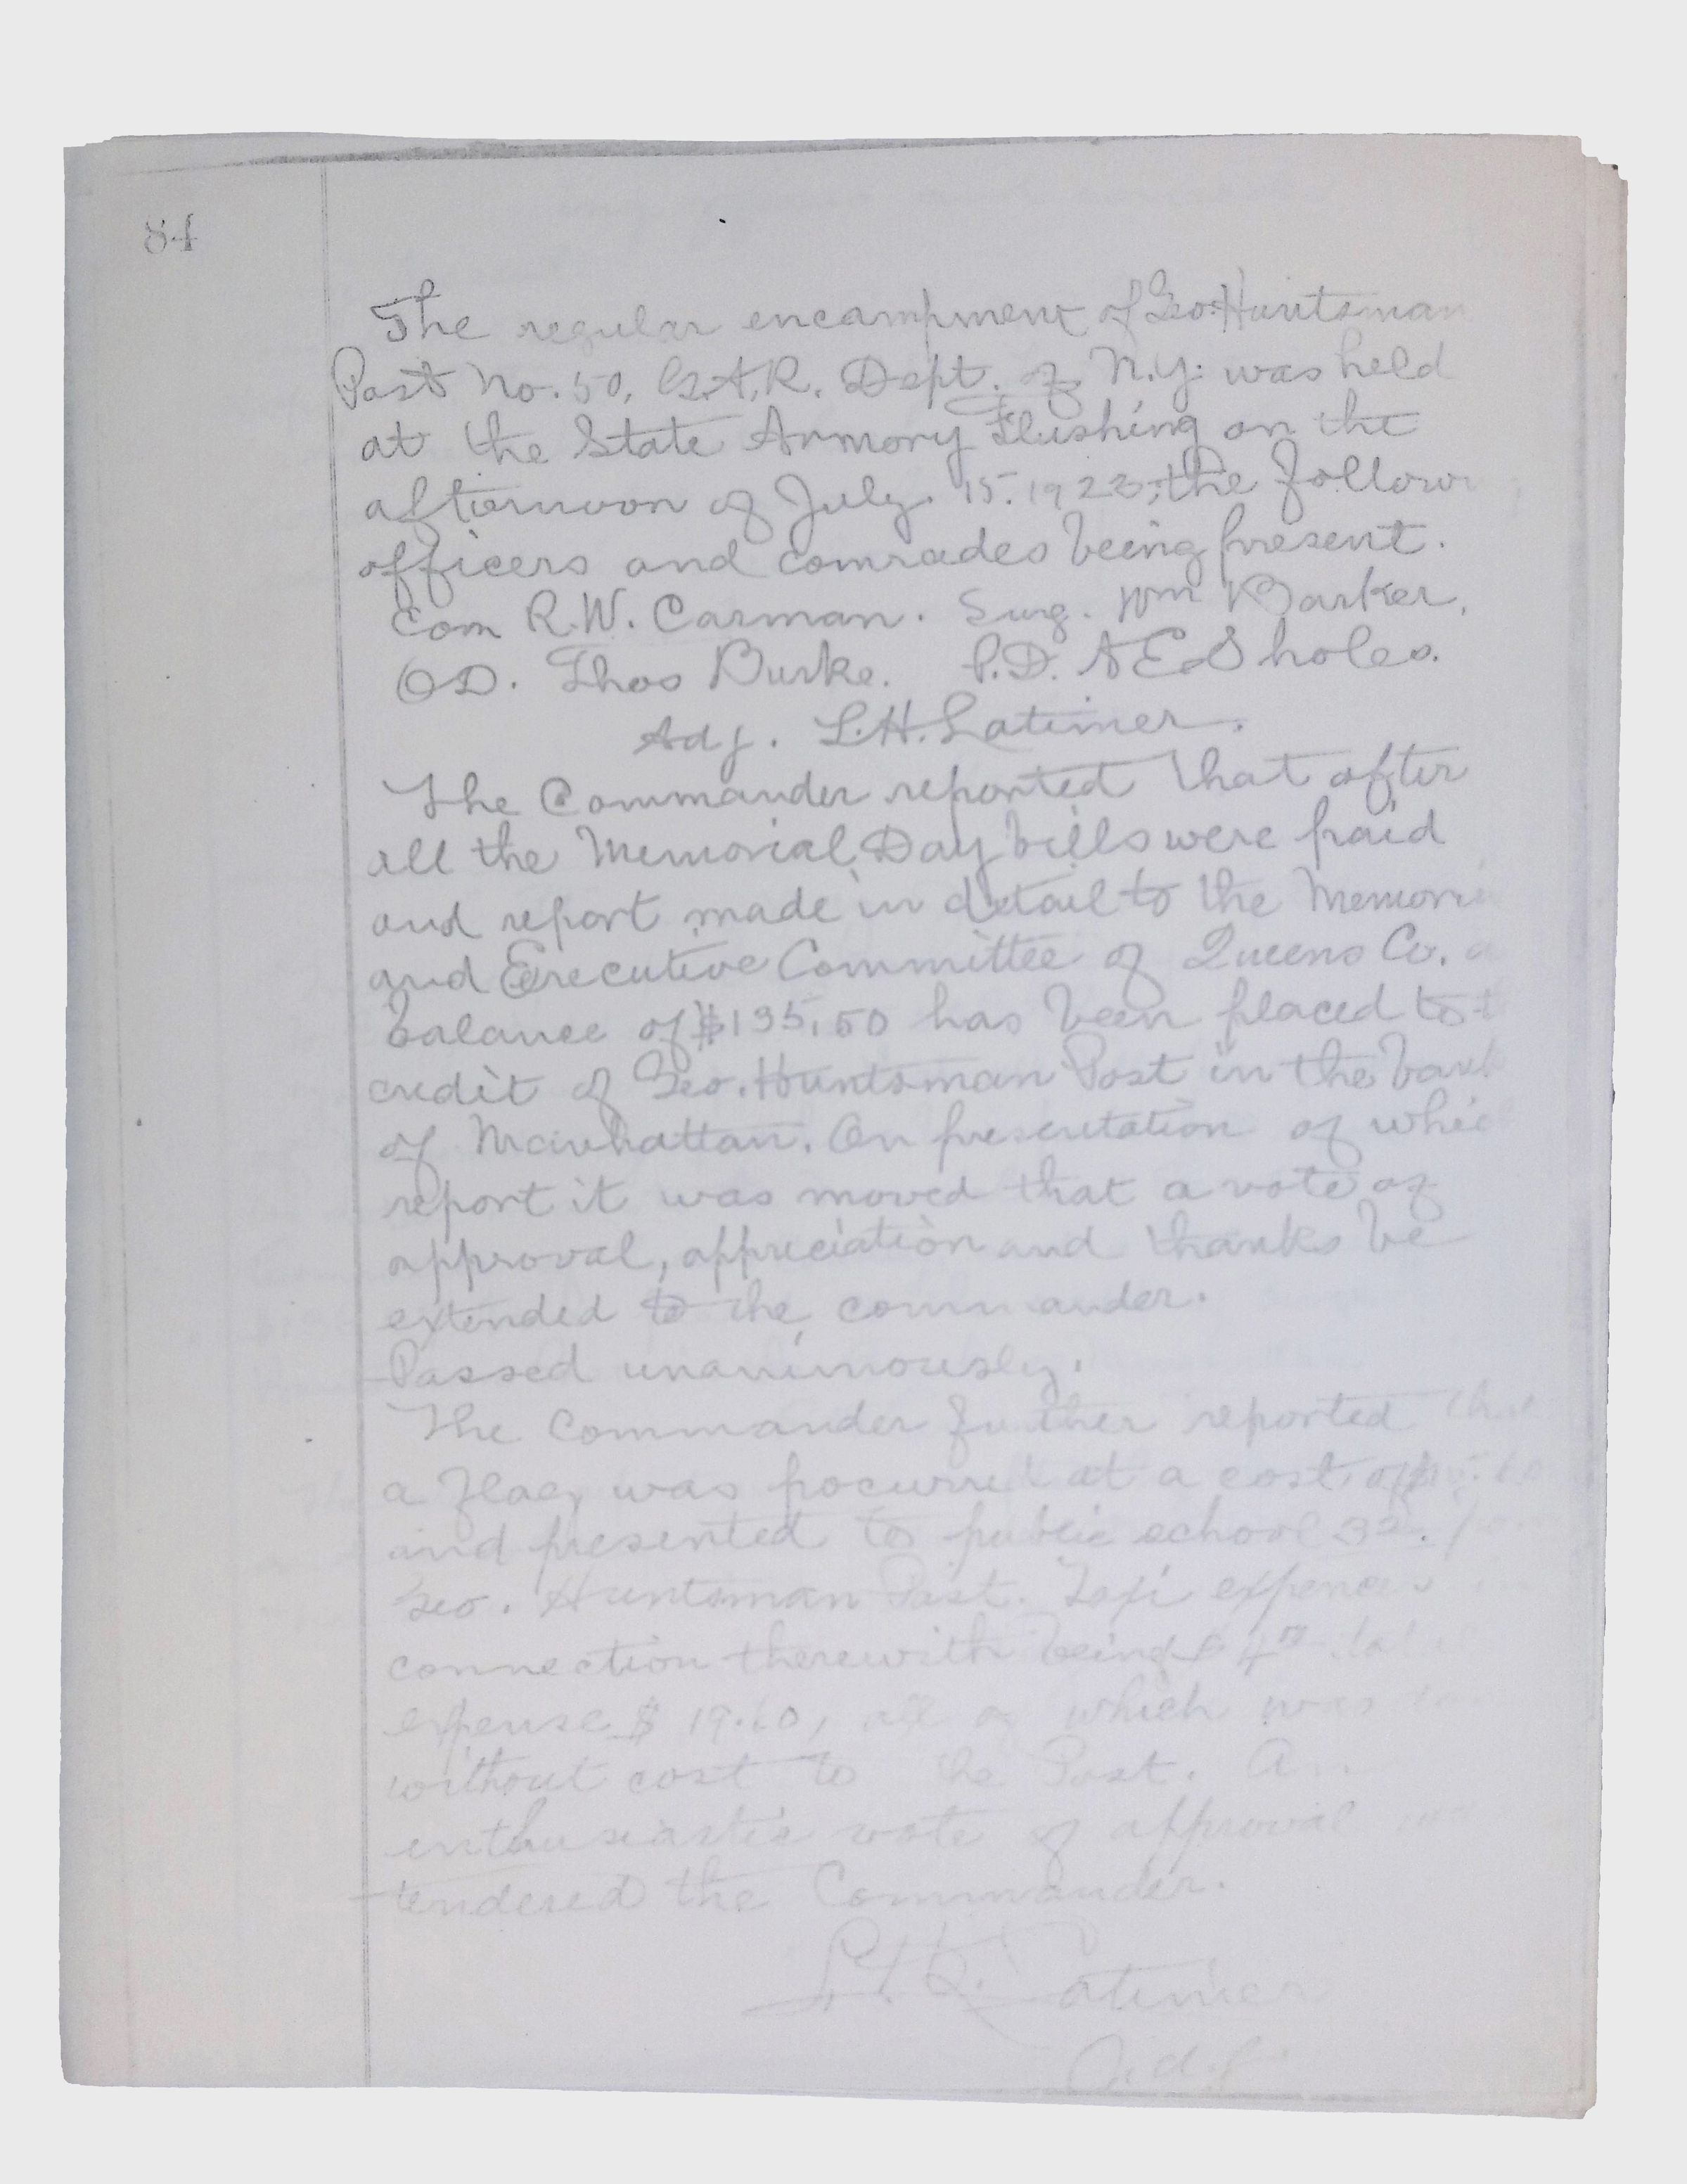 84
The regular encampment of Geo. Huntsman
Post No. 50, G.A.R. Dept. of N.Y. was held
at the State Armory Flushing on the
afternoon of July. 15. 1923, the follow
officers and comrades being present.
Com R.W. Carman. Surg. Wm Barker,
O.D. Thos Burke. P.D. A E Sholes.
Adj. L.H. Latimer.
The Commander reported that after
all the Memorial Day bills were paid
and report made in detail to the Memori
and Executive Committee of Queens Co. a
balance of $135.50 has been placed to
credit of Geo. Huntsman Post in the bank
of Manhattan. On presentation of whic
report it was moved that a vote of
approval, appreciation and thanks be
extended to the commander.
Passed unanimously.
The Commander further reported that
a Flag was procurred at a cost of
and presented to public school 32.
Geo. Huntsman Post. Taxi expences in
connection therewith being $4
expense $ 19.60, all of which was
without cost to the Post. An
enthusiastic vote of approval was
tendered the Commander.
L.H. Latimer
Adj.